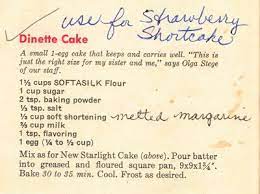 use for Strawberry
Shortcake
Dinette Cake
A small 1-egg cake that keeps and carries well. "This is
just the right size for my sister and me," says Olga Stege
of our staff.
1½ cups SOFTASILK Flour
1 cup sugar
2 tsp. baking powder
½ tsp. salt
⅓ cup soft shortening melted margarine
⅔ cup milk
1 tsp. flavoring
1 egg (¼ to ⅓ cup)
Mix as for New Starlight Cake (above). Pour batter
into greased and floured square pan, 9x9x1¾".
Bake 30 to 35 min. Cool. Frost as desired.